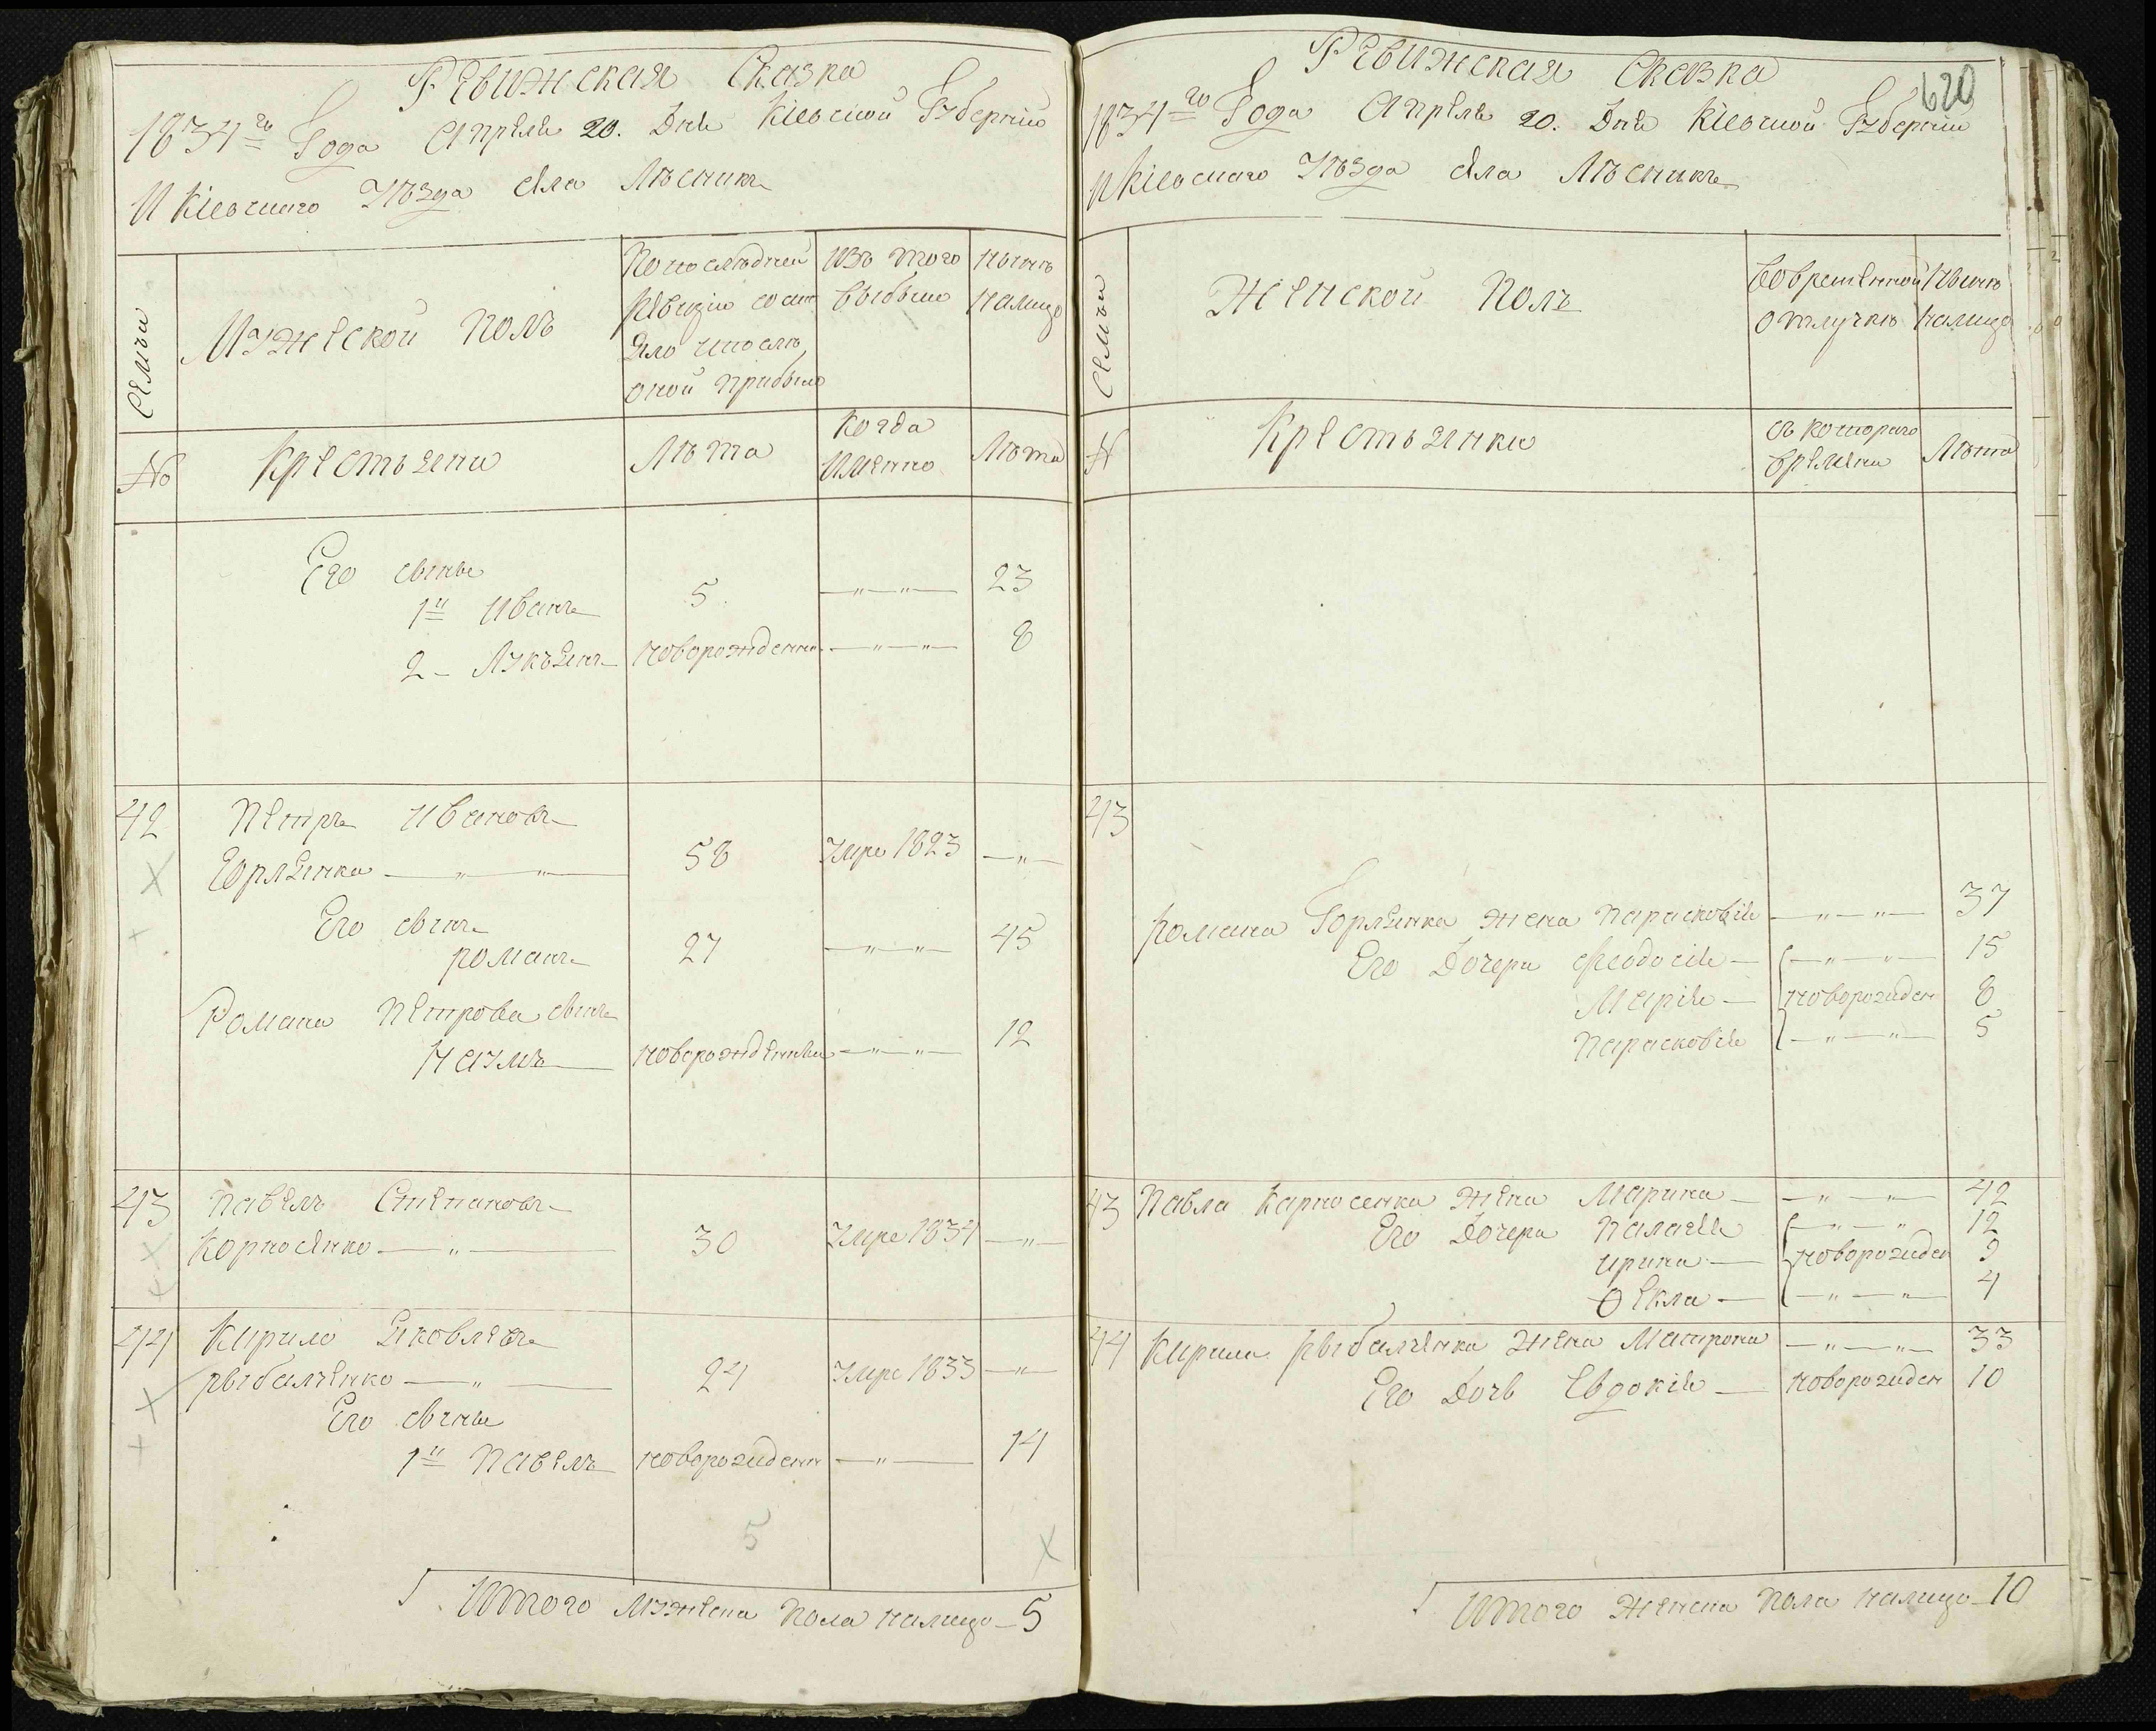 Ревижская Сказка
1834го Года Апреля 20. Дня Кіевской Губерніи
И Кіевского Уѣзда села Лѣсникъ
Семьи
Мужеской полъ
По последней
ревизіи состо
яло и после
оной прибыло
изъ того
выбыло
нынѣ
налицо
№
Крестьяни
Лѣта
Когда
имянно
Лѣта
Его сынъя
1й Иванъ 5 23
2 Лукъянъ новорожденны 8
42 Петръ Ивановъ
Горлянка 58 Умре 1823
Его сынъ
романъ 27 45
Романа Петрова сынъ
Наумъ новорожденны 12
43 Павелъ Степановъ
Корносенко 30 Умре 1834
44 Кирило Яковлевъ
рыбалченко 24 Умре 1833
Его сынъя
1й Павелъ новорожденн 14
5
Итого мужеска пола налицо 5
620
Ревижская Сказка
1834го Года Апреля 20. Дня Кіевской Губерніи
И Кіевского Уѣзда села Лѣсникъ
Семьи
Женской Полъ
Во временной
отлучкѣ
Нынѣ
налицо
№
Крестьянки
съ котораго
времени
Лѣта
43
Романа Горлянка жена Парасковія 37
Его Дочери Феодосія 15
Марія новорожден 8
Парасковія 5
43 Павла Карносенка жена Марина 42
Его Дочери Палагея 12
ирина новорожден 9
Ѳекла 4
44 Кирила рыбалченка жена Матрона 33
Его Дочь Евдокія новорожден 10
Итого женска пола налицо 10